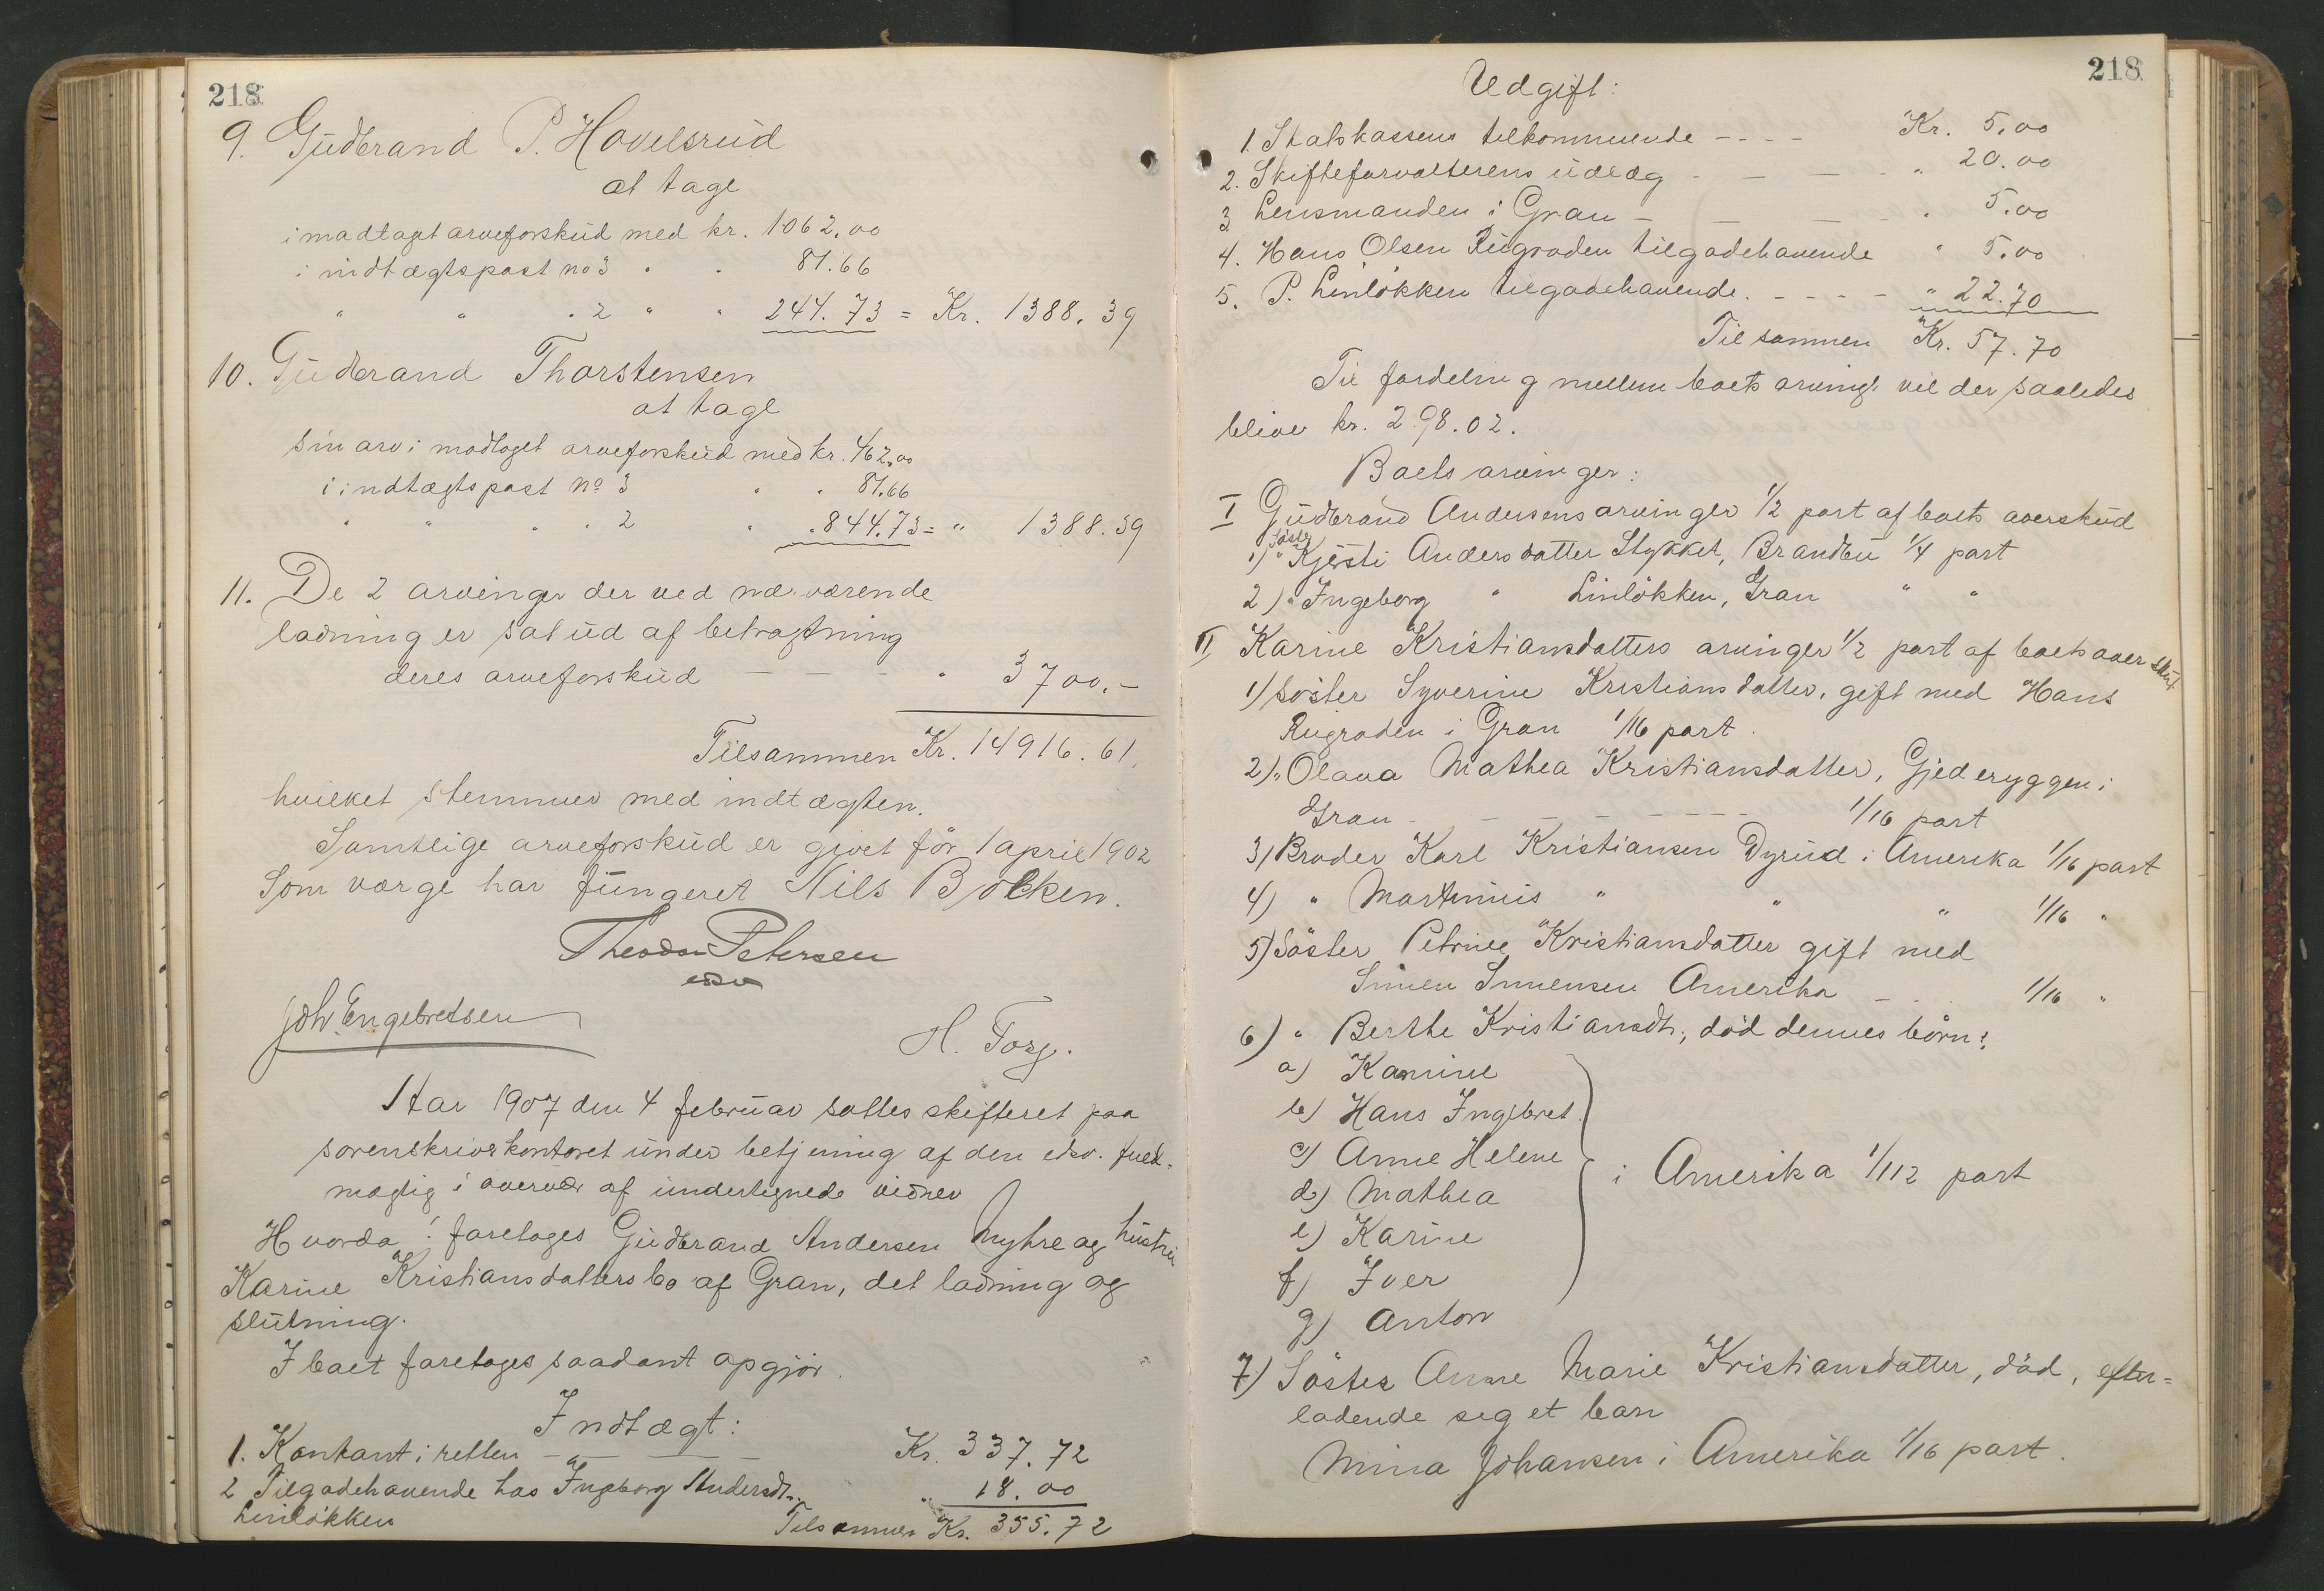 218
9. Gudbrand P. Hovelsrud
at tage
i modtaget arveforskud med kr. 1062.00
i indtægtspost no 3 " " 81.66
" " " 2 " " 244.73 = Kr. 1388.39
10. Gudbrand Thorstensen
at tage
sin arv i modtaget arveforskud med kr. 462,00
i indtægtspost no 3 " " 81.66
" " " 2 " " 844.73 = " 1388.39
11. De 2 arvinger der ved nærværende
lodning er sat ud af betragtning
deres arveforskud — — — " 3700.-
Tilsammen Kr. 14916.61.
hvilket stemmer med indtægten.
Samtlige arveforskud er givet før 1 april 1902
Som værge har fungeret Nils Bolken.
Theodor Petersen
edsv
Joh. Engebretsen
H. Torg.
Aar 1907 den 4 februar sattes skifteret paa
sorenskriverkontoret under betjening af den edsv. fuld-
mægtig i overvær af undertegnede vidner
Hvorda: foretoges Gudbrand Andersen Myhre og hustru
Karine Kristiansdatters bo af Gran, det lodning og
slutning.
I boet foretoges saadant opgjør.
Indtægt:
1. Kontant i retten — — — Kr. 337.72
2 Tilgodehavende hos Ingeborg Andersdtr.
Linløkken " 18.00
Tilsammen Kr. 355.72
218
Udgift:
1. Statskassens tilkommende - - - - Kr. 5.00
2. Skifteforvalterens udlæg - — — - " 20.00
3 Lensmanden i Gran - — — - " 5.00
4. Hans Olsen Rugroden tilgodehavende " 5.00
5. P. Linløkken tilgodehavende. - - - - " 22.70
Tilsammen Kr. 57.70
Til fordeling mellem boets arving. vil der saaledes
blive kr. 298.02.
Boets arvinger:
I Gudbrand Andersens arvinger 1/2 part af boets overskud
1) Søster Kjersti Andersdatter Stykket, Brandbu 1/4 part
2) " Ingeborg " Linløkken, Gran " "
II Karine Kristiansdatters arvinger 1/2 part af boets overskud
1) Søster Syverine Kristiansdatter, gift med Hans
Rugroden i Gran 1/16 part.
2) " Olava Mathea Kristiansdatter, Gjederyggen i
Gran - - - - - - - - 1/16 part
3) Broder Karl Kristiansen Dyrud i Amerika 1/16 part
4) " Martinius " " " 1/16 "
5) Søster Petrine Kristiansdatter gift med
Simen Simensen Amerika - - - 1/16 "
6) " Berthe Kristiansdtr, død dennes børn:
a) Kamine
b) Hans Ingebret
c) Anne Helene
d) Mathea
i Amerika 1/112 part
e) Karine
f) Iver
g) Anton
7) Søster Anne Marie Kristiansdatter, død, efter-
ladende sig et barn
Mina Johansen i Amerika 1/16 part.